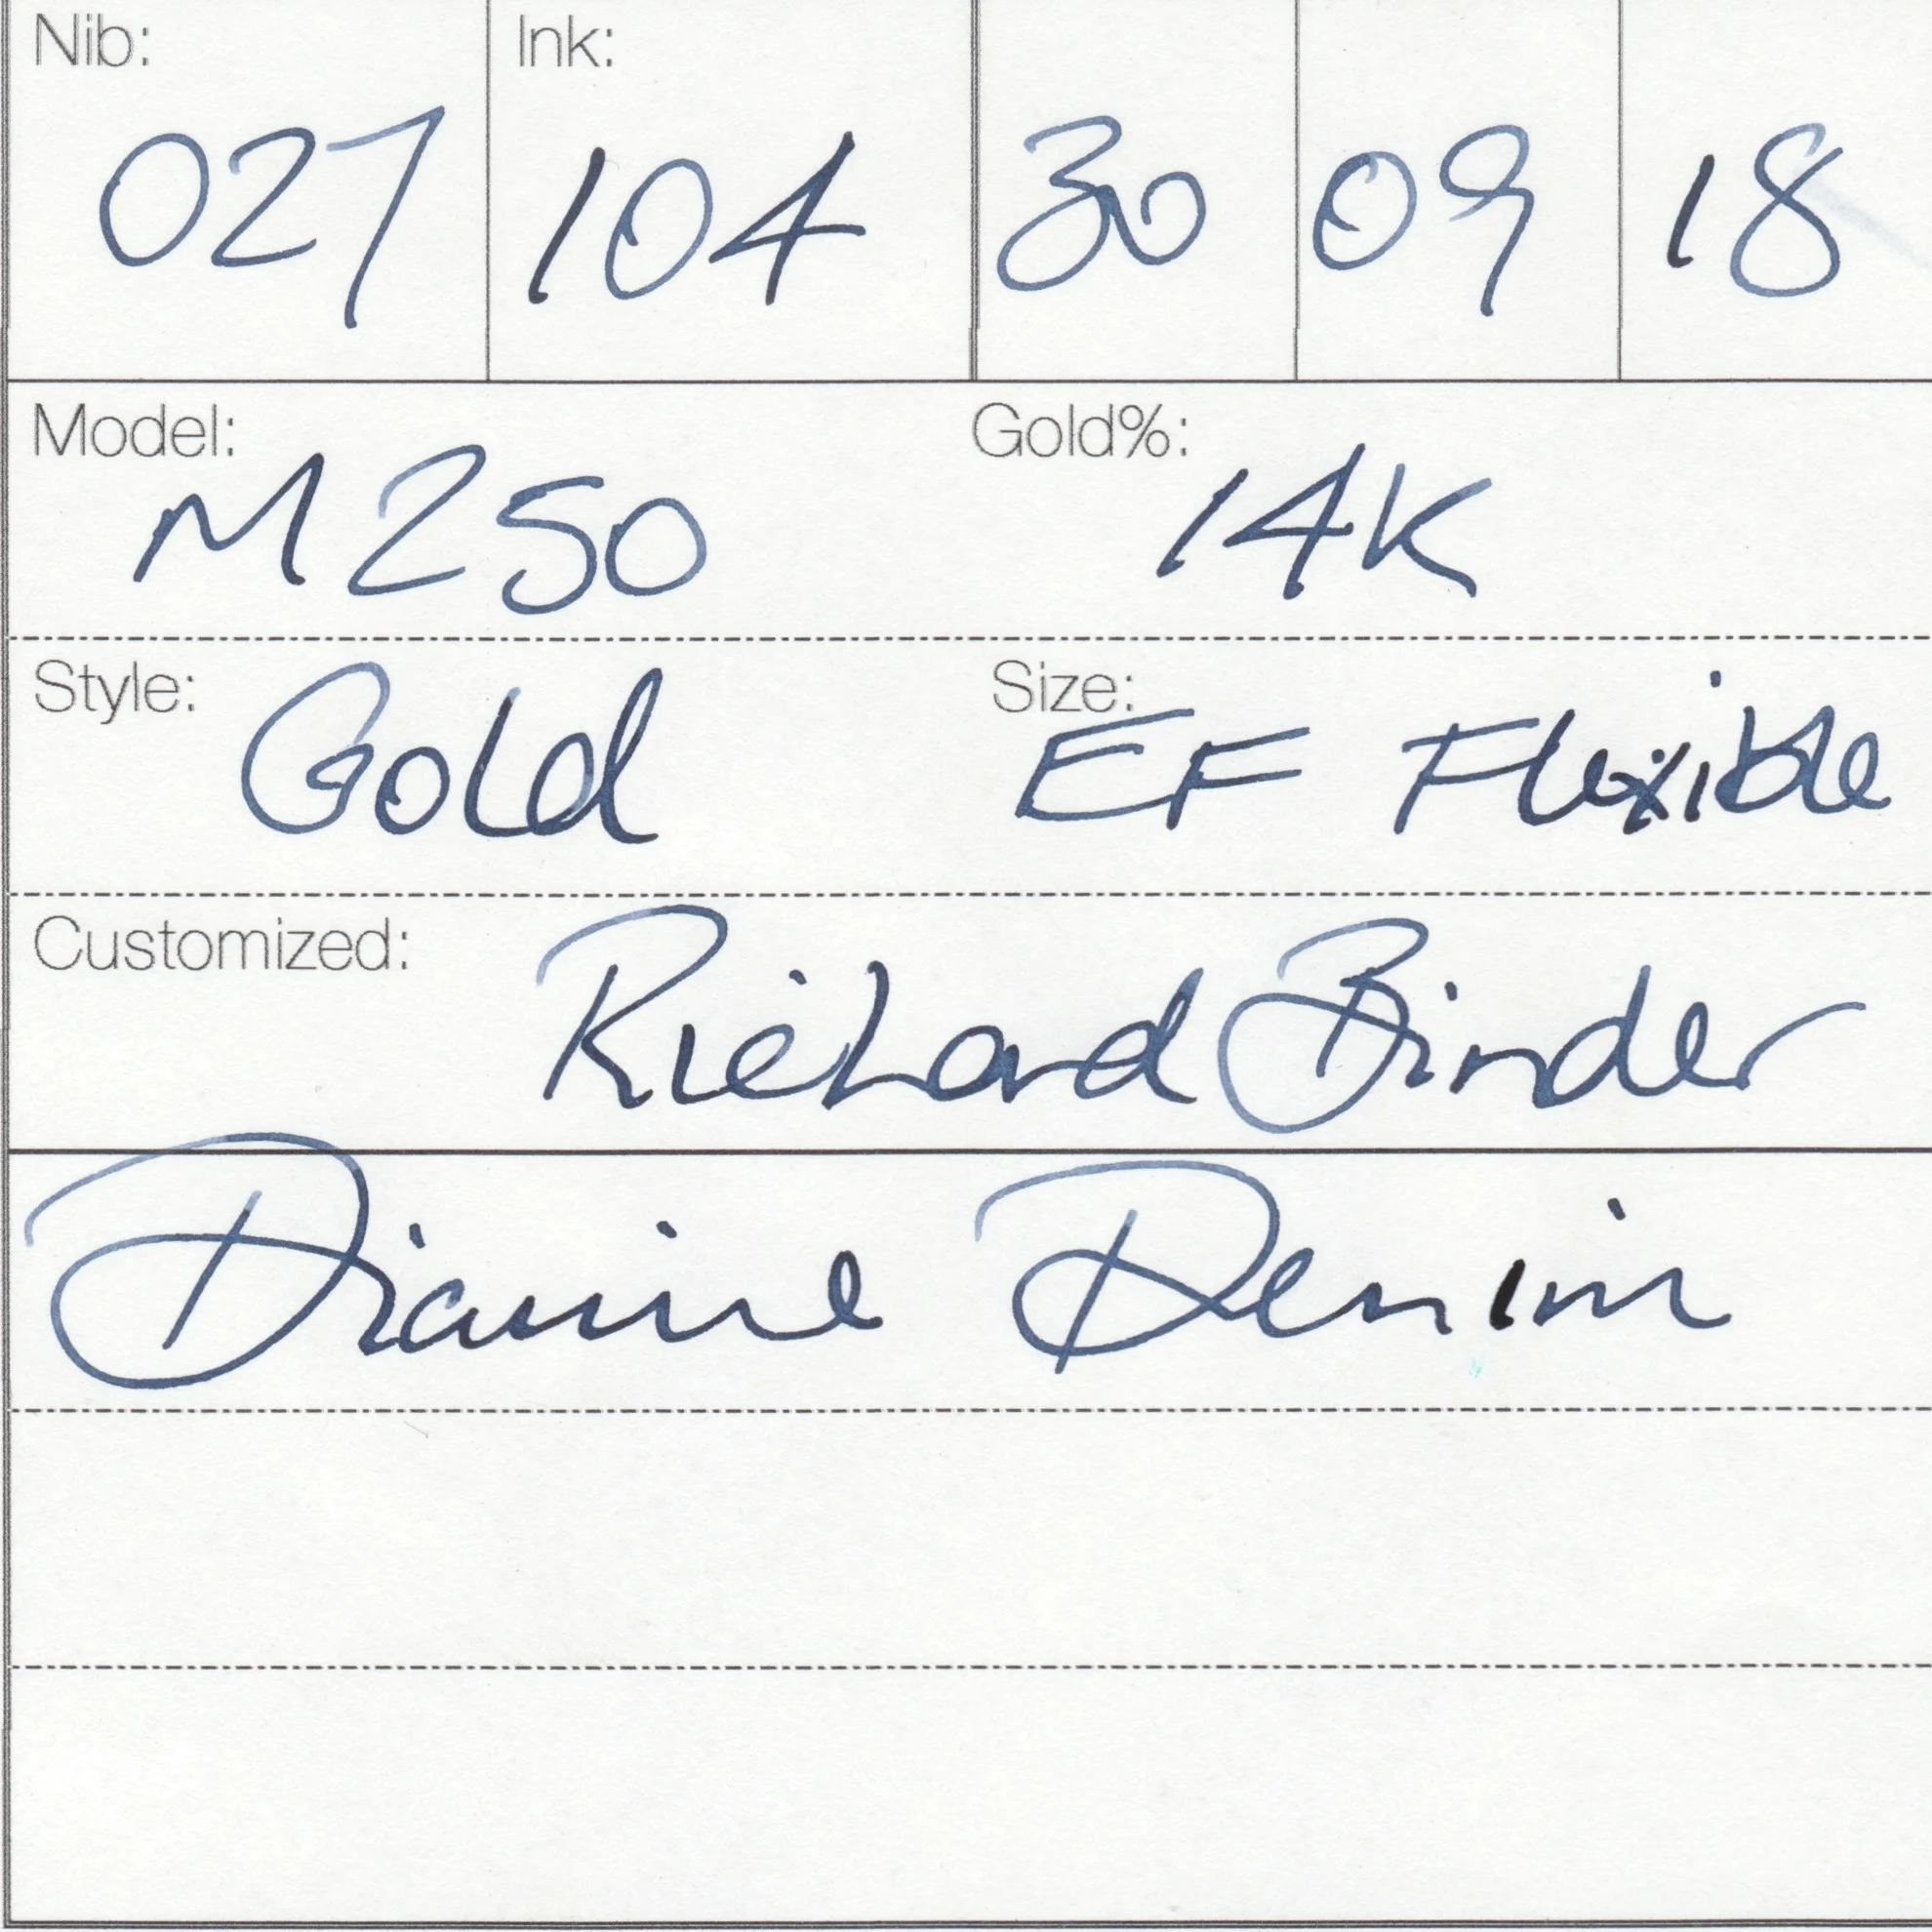 Nib: Ink:
027 104 30 09 18
Model: M250 Gold%: 14K
Style: Gold Size: EF Flexible
Customized: Richard Binder
Diamine Denim